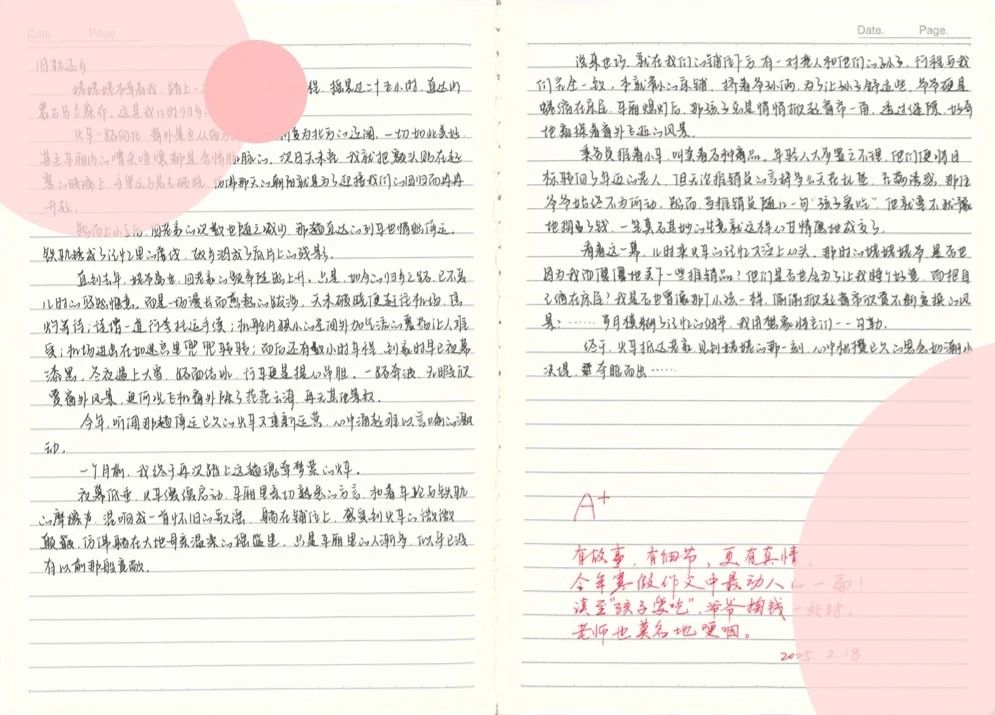 Date.
Page.
旧轨还乡
姥姥姥爷牵着我，踏上一 程，摇晃过二十五小时，直达内
蒙古乌兰察布，这是我儿时归乡
火车一路向北，窗外景色从 变为北方的辽阔，一切切北美好，
甚至车厢内的嘈杂喧嚷都是含情脉脉的。次日天未亮，我就把额头贴在起
雾的玻璃上，守望远方晨光破晓，仿佛那天的朝阳就是为了迎接我们的回归而冉冉
升起。
然而上小学后，回老家的次数也随之减少，那趟直达的列车也悄然停运，
铁轨锈成了记忆里的虚线，故乡凋成了底片上的残影。
直到去年，姥爷离世，回老家的频率陡然上升，只是，如今的归乡之路，已不是
儿时的轻松惬意，而是一场漫长而煎熬的跋涉，天未破晓便赶往机场，焦
灼等待；谨慎一道行李托运手续；机舱内狭小的空间外加气流的裹挟让人难
受；机场进出在如迷宫里兜兜转转；而后还有数小时车程，到家时早已夜幕
漆黑，冬夜遇上大雪，路面结冰，行车更是提心吊胆。一路奔波，无暇欣
赏窗外风景，更何况飞机窗外除了茫茫云海，再无其他景致。
今年，听闻那趟停运已久的火车又重新运营，心中涌起难以言喻的激
动。
一个月前，我终于再次踏上这趟魂牵梦萦的火车。
夜幕低垂，火车缓缓启动，车厢里亲切熟悉的方言，和着车轮与铁轨
的摩擦声，混响成一首怀旧的歌谣，躺在铺位上，感受到火车的微微
颠簸，仿佛躺在大地母亲温柔的摇篮里，只是车厢里的人渐多，似乎已没
有以前那般宽敞。
Date.
Page.
说来也巧，就在我们的铺位下方有一对老人和他们的孙子，行程与我
们完全一致，本就窄小的床铺，挤着爷孙俩，为了让孙子舒适些，爷爷硬是
蜷缩在床尾，车厢熄灯后，那孩子总是悄悄掀起窗帘一角，透过缝隙，好奇
地翻探着窗外飞逝的风景。
乘务员推着小车，叫卖着各种商品。年轻人大多置之不理，他们便将目
标转向了年迈的老人，但无论推销员的言辞多么天花乱坠，充满诱惑，那位
爷爷始终不为所动。然而，当推销员随口一句“孩子爱吃”，他就毫不犹豫
地掏出了钱，一笔莫名其妙的生意就这样心甘情愿地成交了。
看着这一幕，儿时乘火车的记忆又泛上心头，那时的姥姥姥爷是否也
因为我而傻傻地买下一些推销品？他们是否也会为了让我睡个好觉，而把自
己缩在床尾？我是否也曾像那个小孩一样，偷偷掀起窗帘欣赏不断变换的风
景？……岁月模糊了记忆的细节，我用想象将它们一一勾勒。
终于，火车抵达老家，见到姥姥的那一刻，心中积攒已久的思念如潮水
决堤，夺眶而出……
A+
有故事，有细节，更有真情。
今年寒假作文中最动人的一篇！
读至“孩子爱吃”、爷爷掏钱一处时，
老师也莫名地哽咽。
2025.2.18